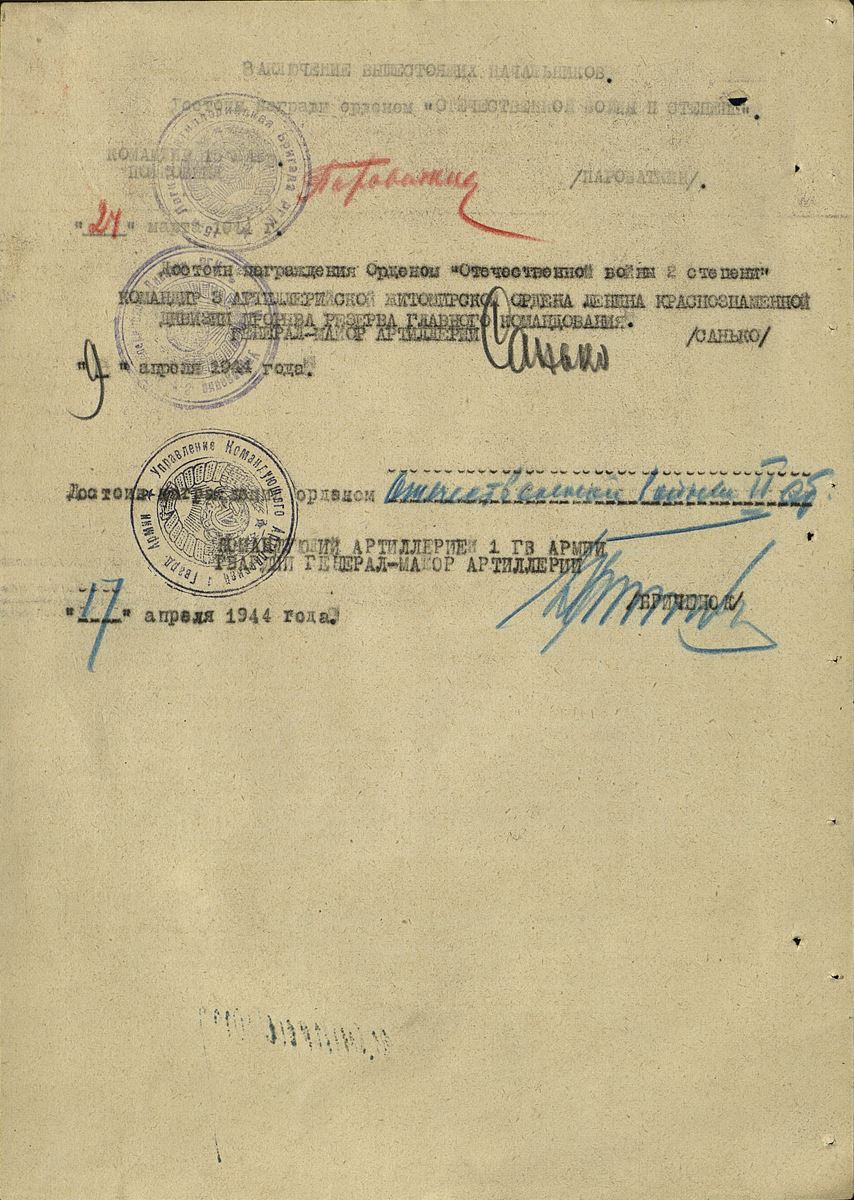 ЗАКЛЮЧЕНИЕ ВЫШЕСТОЯЩИХ НАЧАЛЬНИКОВ.
Достоин награды орденом "ОТЕЧЕСТВЕННОЙ ВОЙНЫ II СТЕПЕНИ".
КОМАНДИР
/ПАРОВАТКИН/.
"24" марта 1944 г.
Достоин награждения Орденом "Отечественной войны 2 степени"
КОМАНДИР 3 АРТИЛЛЕРИЙСКОЙ ЖИТОМИРСКОЙ ОРДЕНА ЛЕНИНА КРАСНОЗНАМЕННОЙ
ДИВИЗИИ ПРОРЫВА РЕЗЕРВА ГЛАВНОГО КОМАНДОВАНИЯ.
ГЕНЕРАЛ-МАЙОР АРТИЛЛЕРИИ Санько /САНЬКО/
"9" апреля 1944 года.
Управление Командующего Артиллерией 1 Гвард. Армии
Достоин награждения орденом Отечественной войны II ст.
КОМАНДУЮЩИЙ АРТИЛЛЕРИЕЙ 1 ГВ АРМИИ
ГВАРДИИ ГЕНЕРАЛ-МАЙОР АРТИЛЛЕРИИ
/БРИЧЕНОК/
"17" апреля 1944 года.